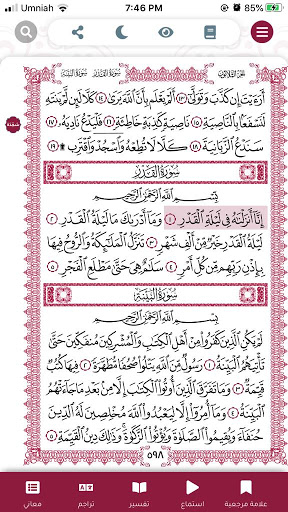 Umniah 7:46 PM 85%
الجزء الثلاثون سورة القدر سورة البينة
أَرَءَيْتَ إِن كَذَّبَ وَتَوَلَّىٰ ١٣ أَلَمْ يَعْلَم بِأَنَّ ٱللَّهَ يَرَىٰ ١٤ كَلَّا لَئِن لَّمْ يَنتَهِ
لَنَسْفَعًۢا بِٱلنَّاصِيَةِ ١٥ نَاصِيَةٍ كَٰذِبَةٍ خَاطِئَةٍ ١٦ فَلْيَدْعُ نَادِيَهُۥ ١٧
سَنَدْعُ ٱلزَّبَانِيَةَ ١٨ كَلَّا لَا تُطِعْهُ وَٱسْجُدْ وَٱقْتَرِب ۩ ١٩
سُورَةُ الْقَدْرِ
بِسْمِ ٱللَّهِ ٱلرَّحْمَٰنِ ٱلرَّحِيمِ
إِنَّآ أَنزَلْنَٰهُ فِى لَيْلَةِ ٱلْقَدْرِ ١ وَمَآ أَدْرَىٰكَ مَا لَيْلَةُ ٱلْقَدْرِ ٢
لَيْلَةُ ٱلْقَدْرِ خَيْرٌ مِّنْ أَلْفِ شَهْرٍ ٣ تَنَزَّلُ ٱلْمَلَٰٓئِكَةُ وَٱلرُّوحُ فِيهَا
بِإِذْنِ رَبِّهِم مِّن كُلِّ أَمْرٍ ٤ سَلَٰمٌ هِىَ حَتَّىٰ مَطْلَعِ ٱلْفَجْرِ ٥
سُورَةُ الْبَيِّنَةِ
بِسْمِ ٱللَّهِ ٱلرَّحْمَٰنِ ٱلرَّحِيمِ
لَمْ يَكُنِ ٱلَّذِينَ كَفَرُوا۟ مِنْ أَهْلِ ٱلْكِتَٰبِ وَٱلْمُشْرِكِينَ مُنفَكِّينَ حَتَّىٰ
تَأْتِيَهُمُ ٱلْبَيِّنَةُ ١ رَسُولٌ مِّنَ ٱللَّهِ يَتْلُوا۟ صُحُفًا مُّطَهَّرَةً ٢ فِيهَا كُتُبٌ
قَيِّمَةٌ ٣ وَمَا تَفَرَّقَ ٱلَّذِينَ أُوتُوا۟ ٱلْكِتَٰبَ إِلَّا مِنۢ بَعْدِ مَا جَآءَتْهُمُ
ٱلْبَيِّنَةُ ٤ وَمَآ أُمِرُوٓا۟ إِلَّا لِيَعْبُدُوا۟ ٱللَّهَ مُخْلِصِينَ لَهُ ٱلدِّينَ
حُنَفَآءَ وَيُقِيمُوا۟ ٱلصَّلَوٰةَ وَيُؤْتُوا۟ ٱلزَّكَوٰةَ وَذَٰلِكَ دِينُ ٱلْقَيِّمَةِ ٥
٥٩٨
علامة مرجعية استماع تفسير تراجم معاني